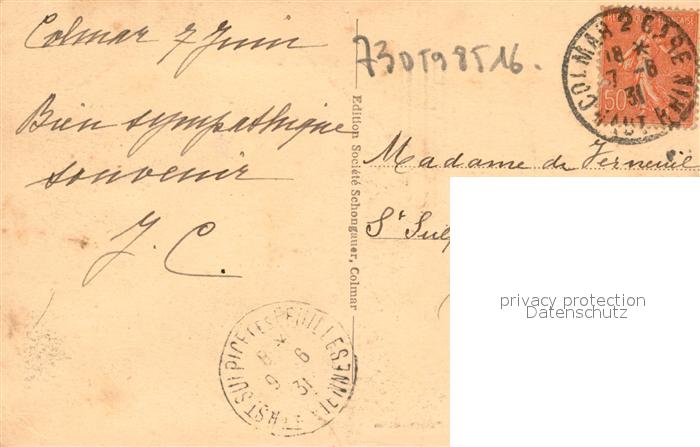 Colmar 7 Juin
Bien sympathique
souvenir
J. C.
73 0T98T16.
Edition Société Schongauer, Colmar
COLMAR 2
18 *
7 -6
31
50
Madame de Verneuil
St Sulp
privacy protection
Datenschutz
ST SULPICE LES FEUILLES
8 *
9 6
31